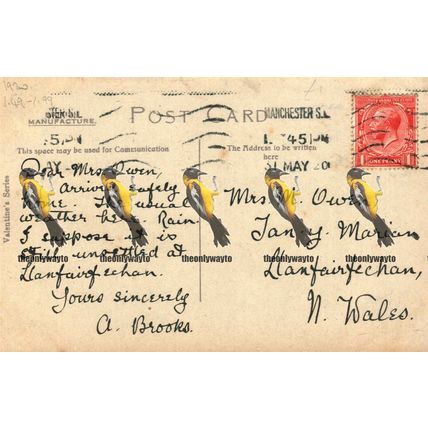 1920
1.49-1.99
MANUFACTURE.
POST CARD
MANCHESTER S.
5 PM
45 PM
MAY 20
ONE PENNY
This space may be used for Communication
The Address to be written
here
Valentine's Series
Dear Mrs Owen,
Arrived safely
home. The usual
weather here. Rain
I suppose it is
still unsettled at
Llanfairfechan.
Yours sincerely
A. Brooks.
Mrs M. Owen
Tan-y-Marian
Llanfairfechan,
N. Wales.
theonlywayto
theonlywayto
theonlywayto
theonlywayto
theonlywayto